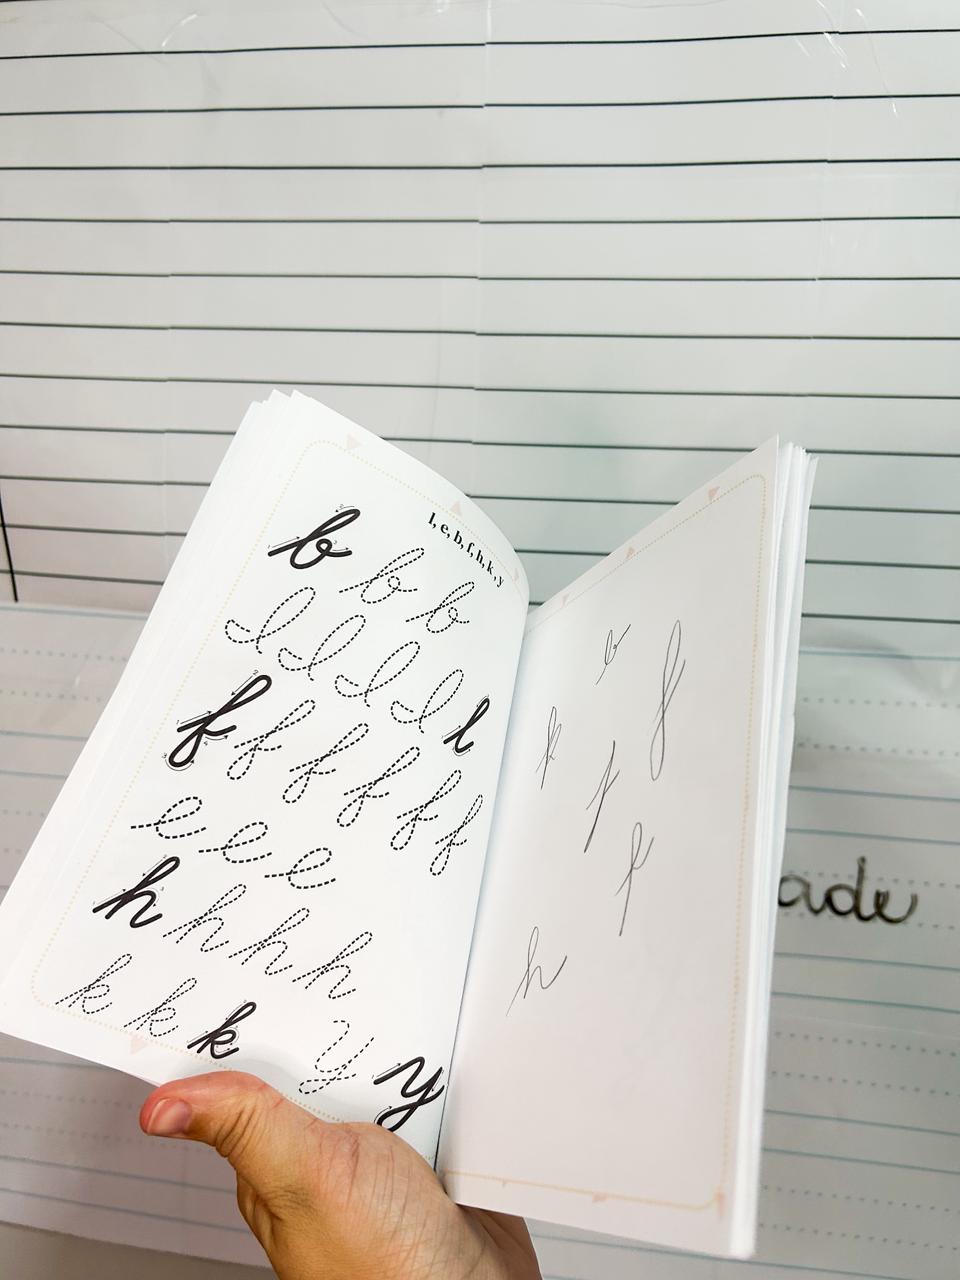 l, e, b, f, h, k, y
b b b
l l l l l
f f f f f f
e e e
h h h h
k k k y y
f
k
h
ade